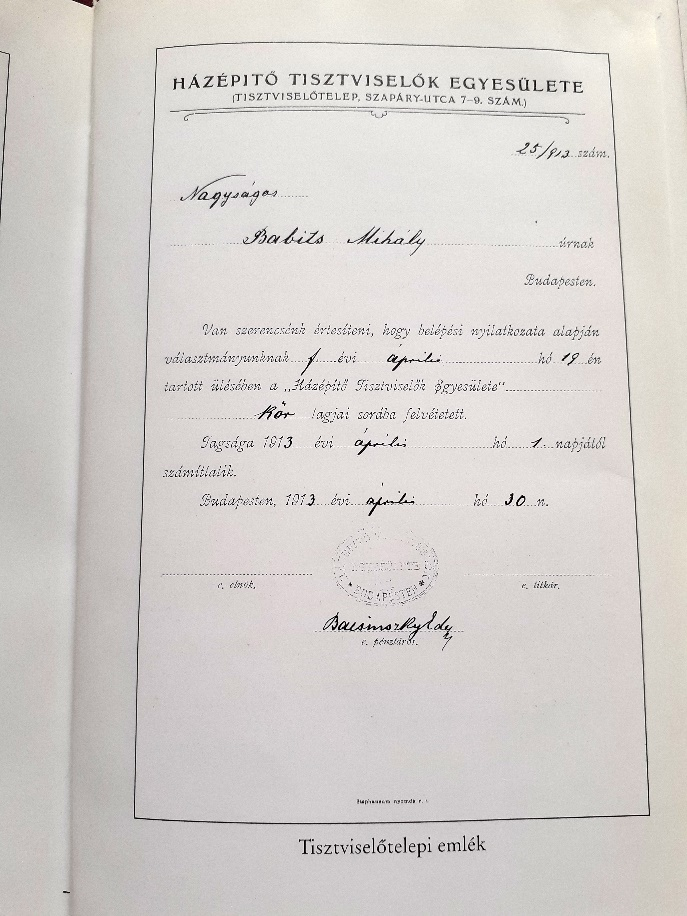 HÁZÉPITŐ TISZTVISELŐK EGYESÜLETE
(TISZTVISELŐTELEP, SZAPÁRY-UTCA 7–9. SZÁM.)
25/913 szám.
Nagyságos
Babits Mihály úrnak
Budapesten.
Van szerencsénk értesíteni, hogy belépési nyilatkozata alapján
választmányunknak f évi április hó 19 én
tartott ülésében a „Házépítő Tisztviselők Egyesülete"
Kör tagjai sordba felvétetett.
Tagsága 1913 évi április hó 1 napjától
számíttatik.
Budapesten, 1913 évi április hó 30 n.
BUDAPESTEN
e. elnök.
e. titkár.
e. pénztáros.
Stephaneum nyomda r. t.
Tisztviselőtelepi emlék